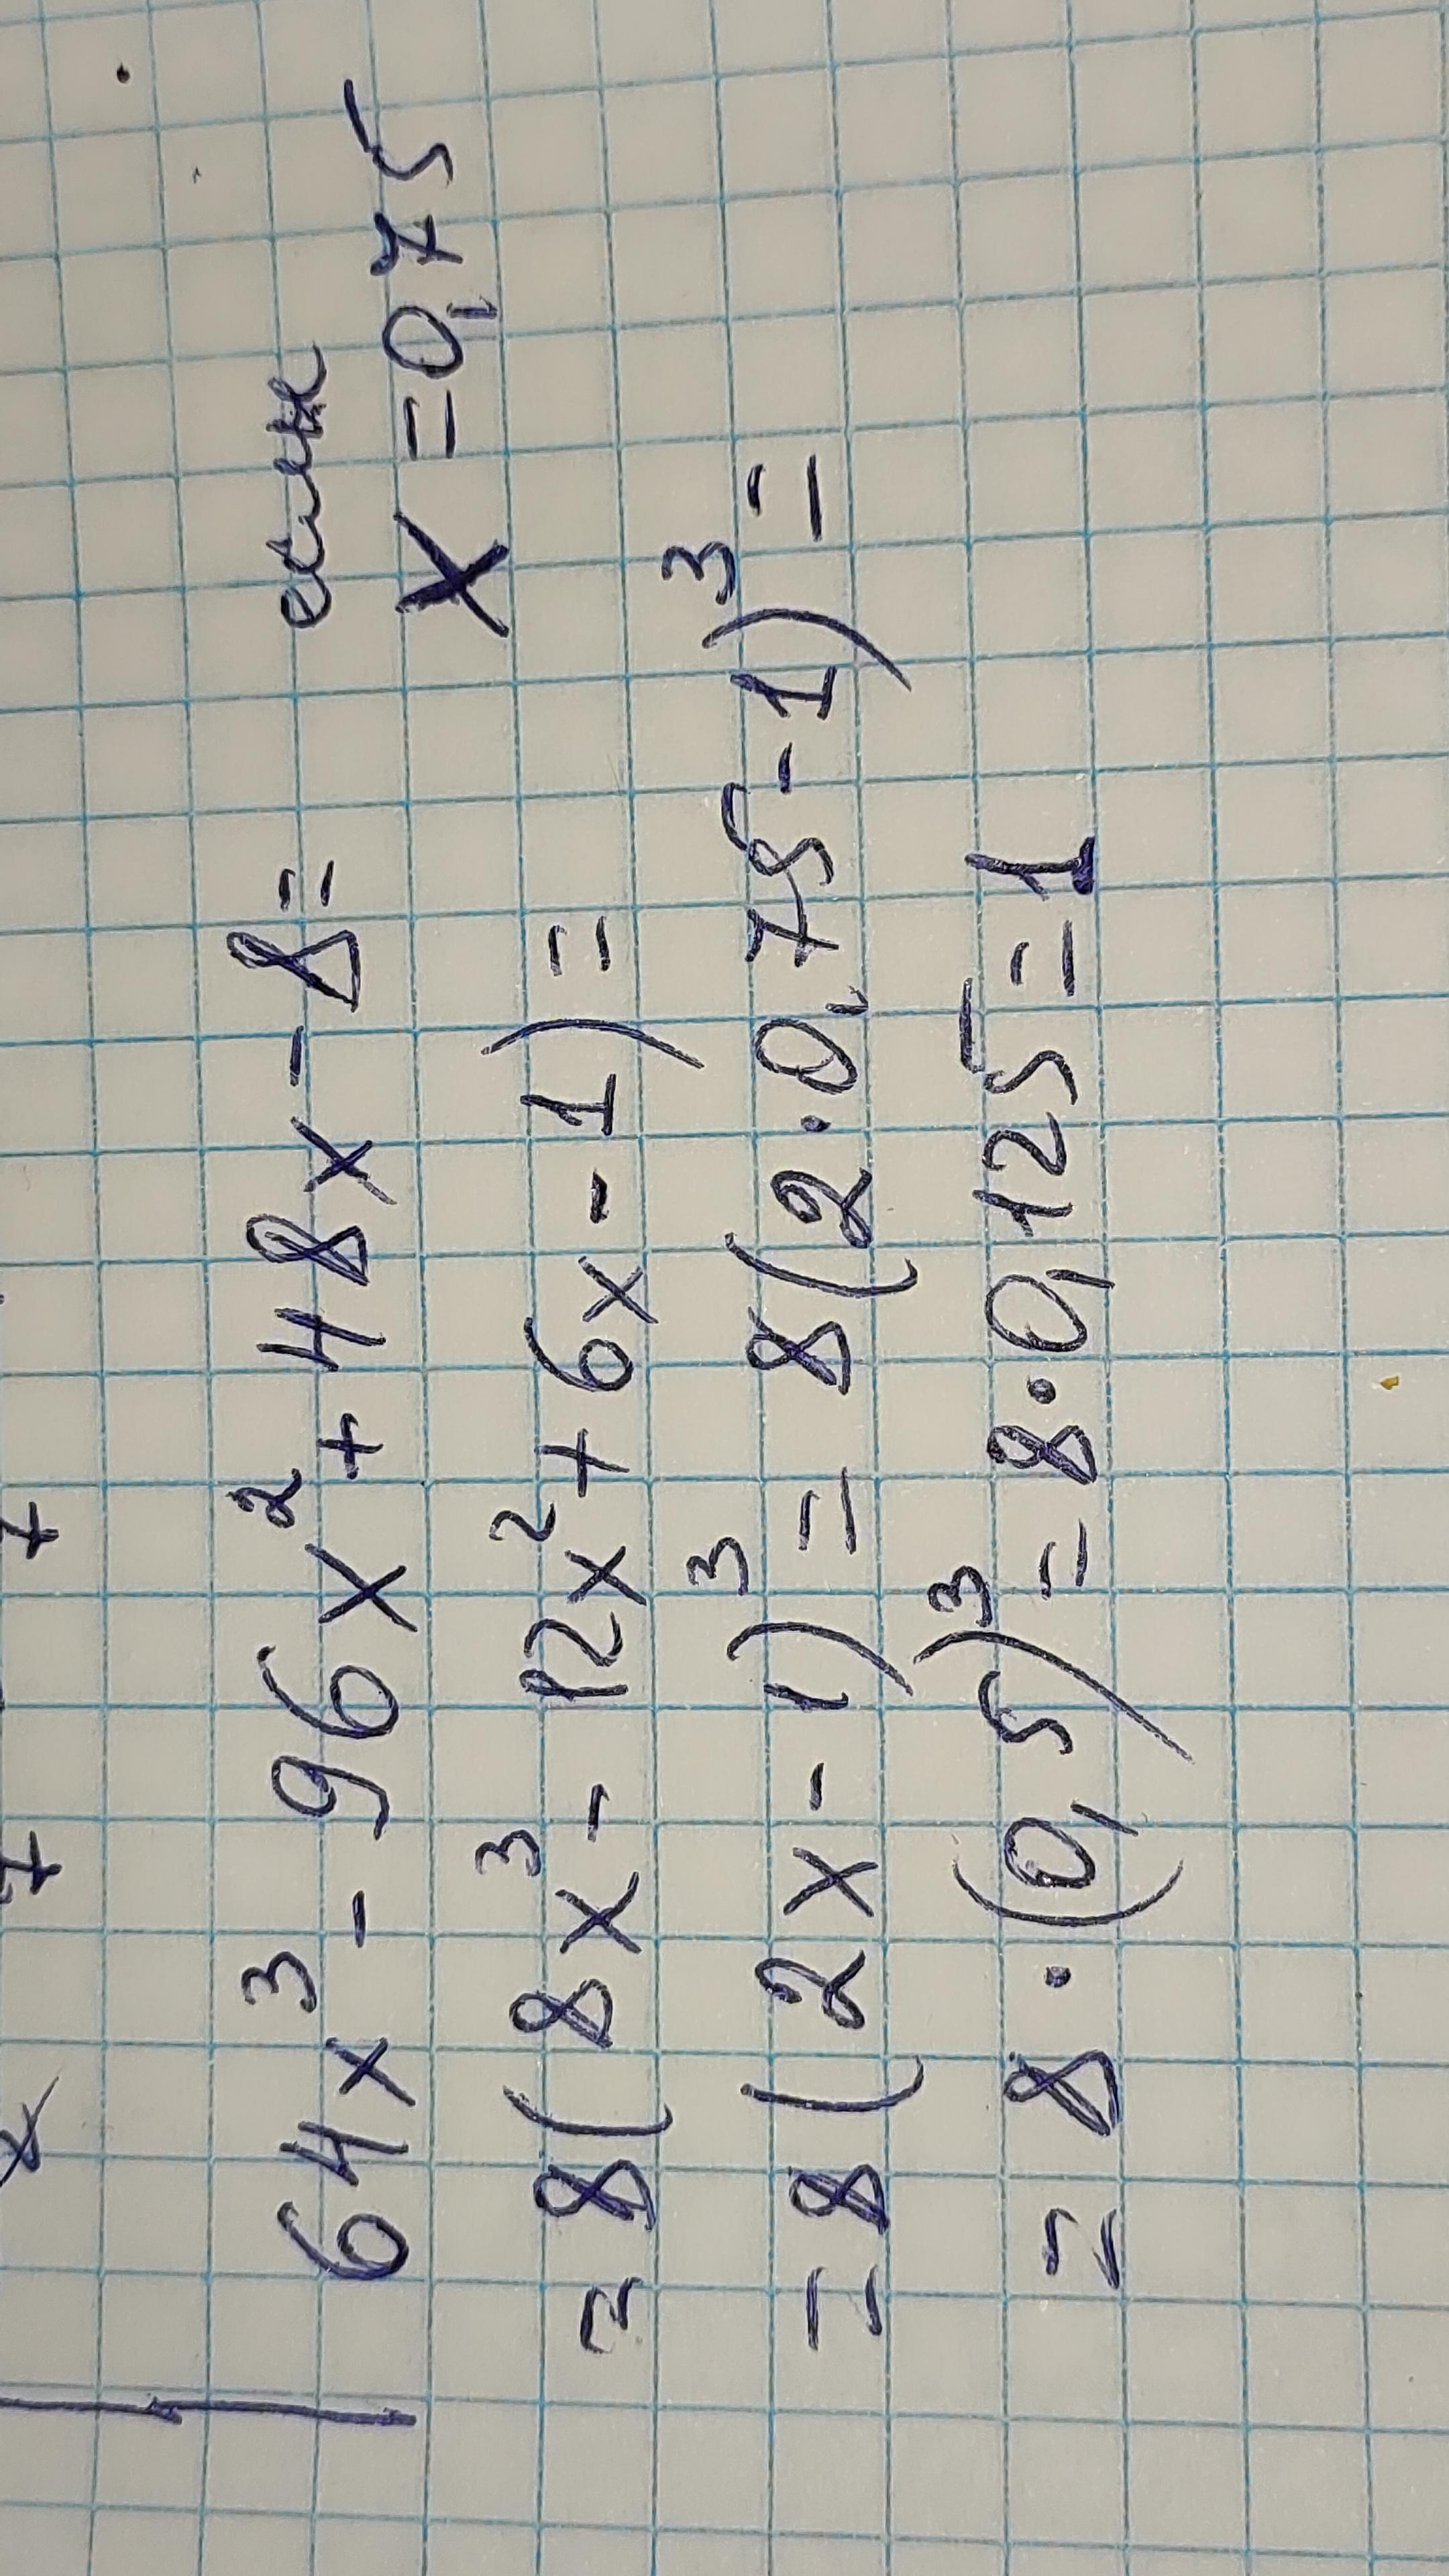 64x³ - 96x² + 48x - 8 = если
x = 0,75
= 8(8x³ - 12x² + 6x - 1) =
= 8(2x - 1)³ = 8(2·0,75 - 1)³ =
= 8·(0,5)³ = 8·0,125 = 1